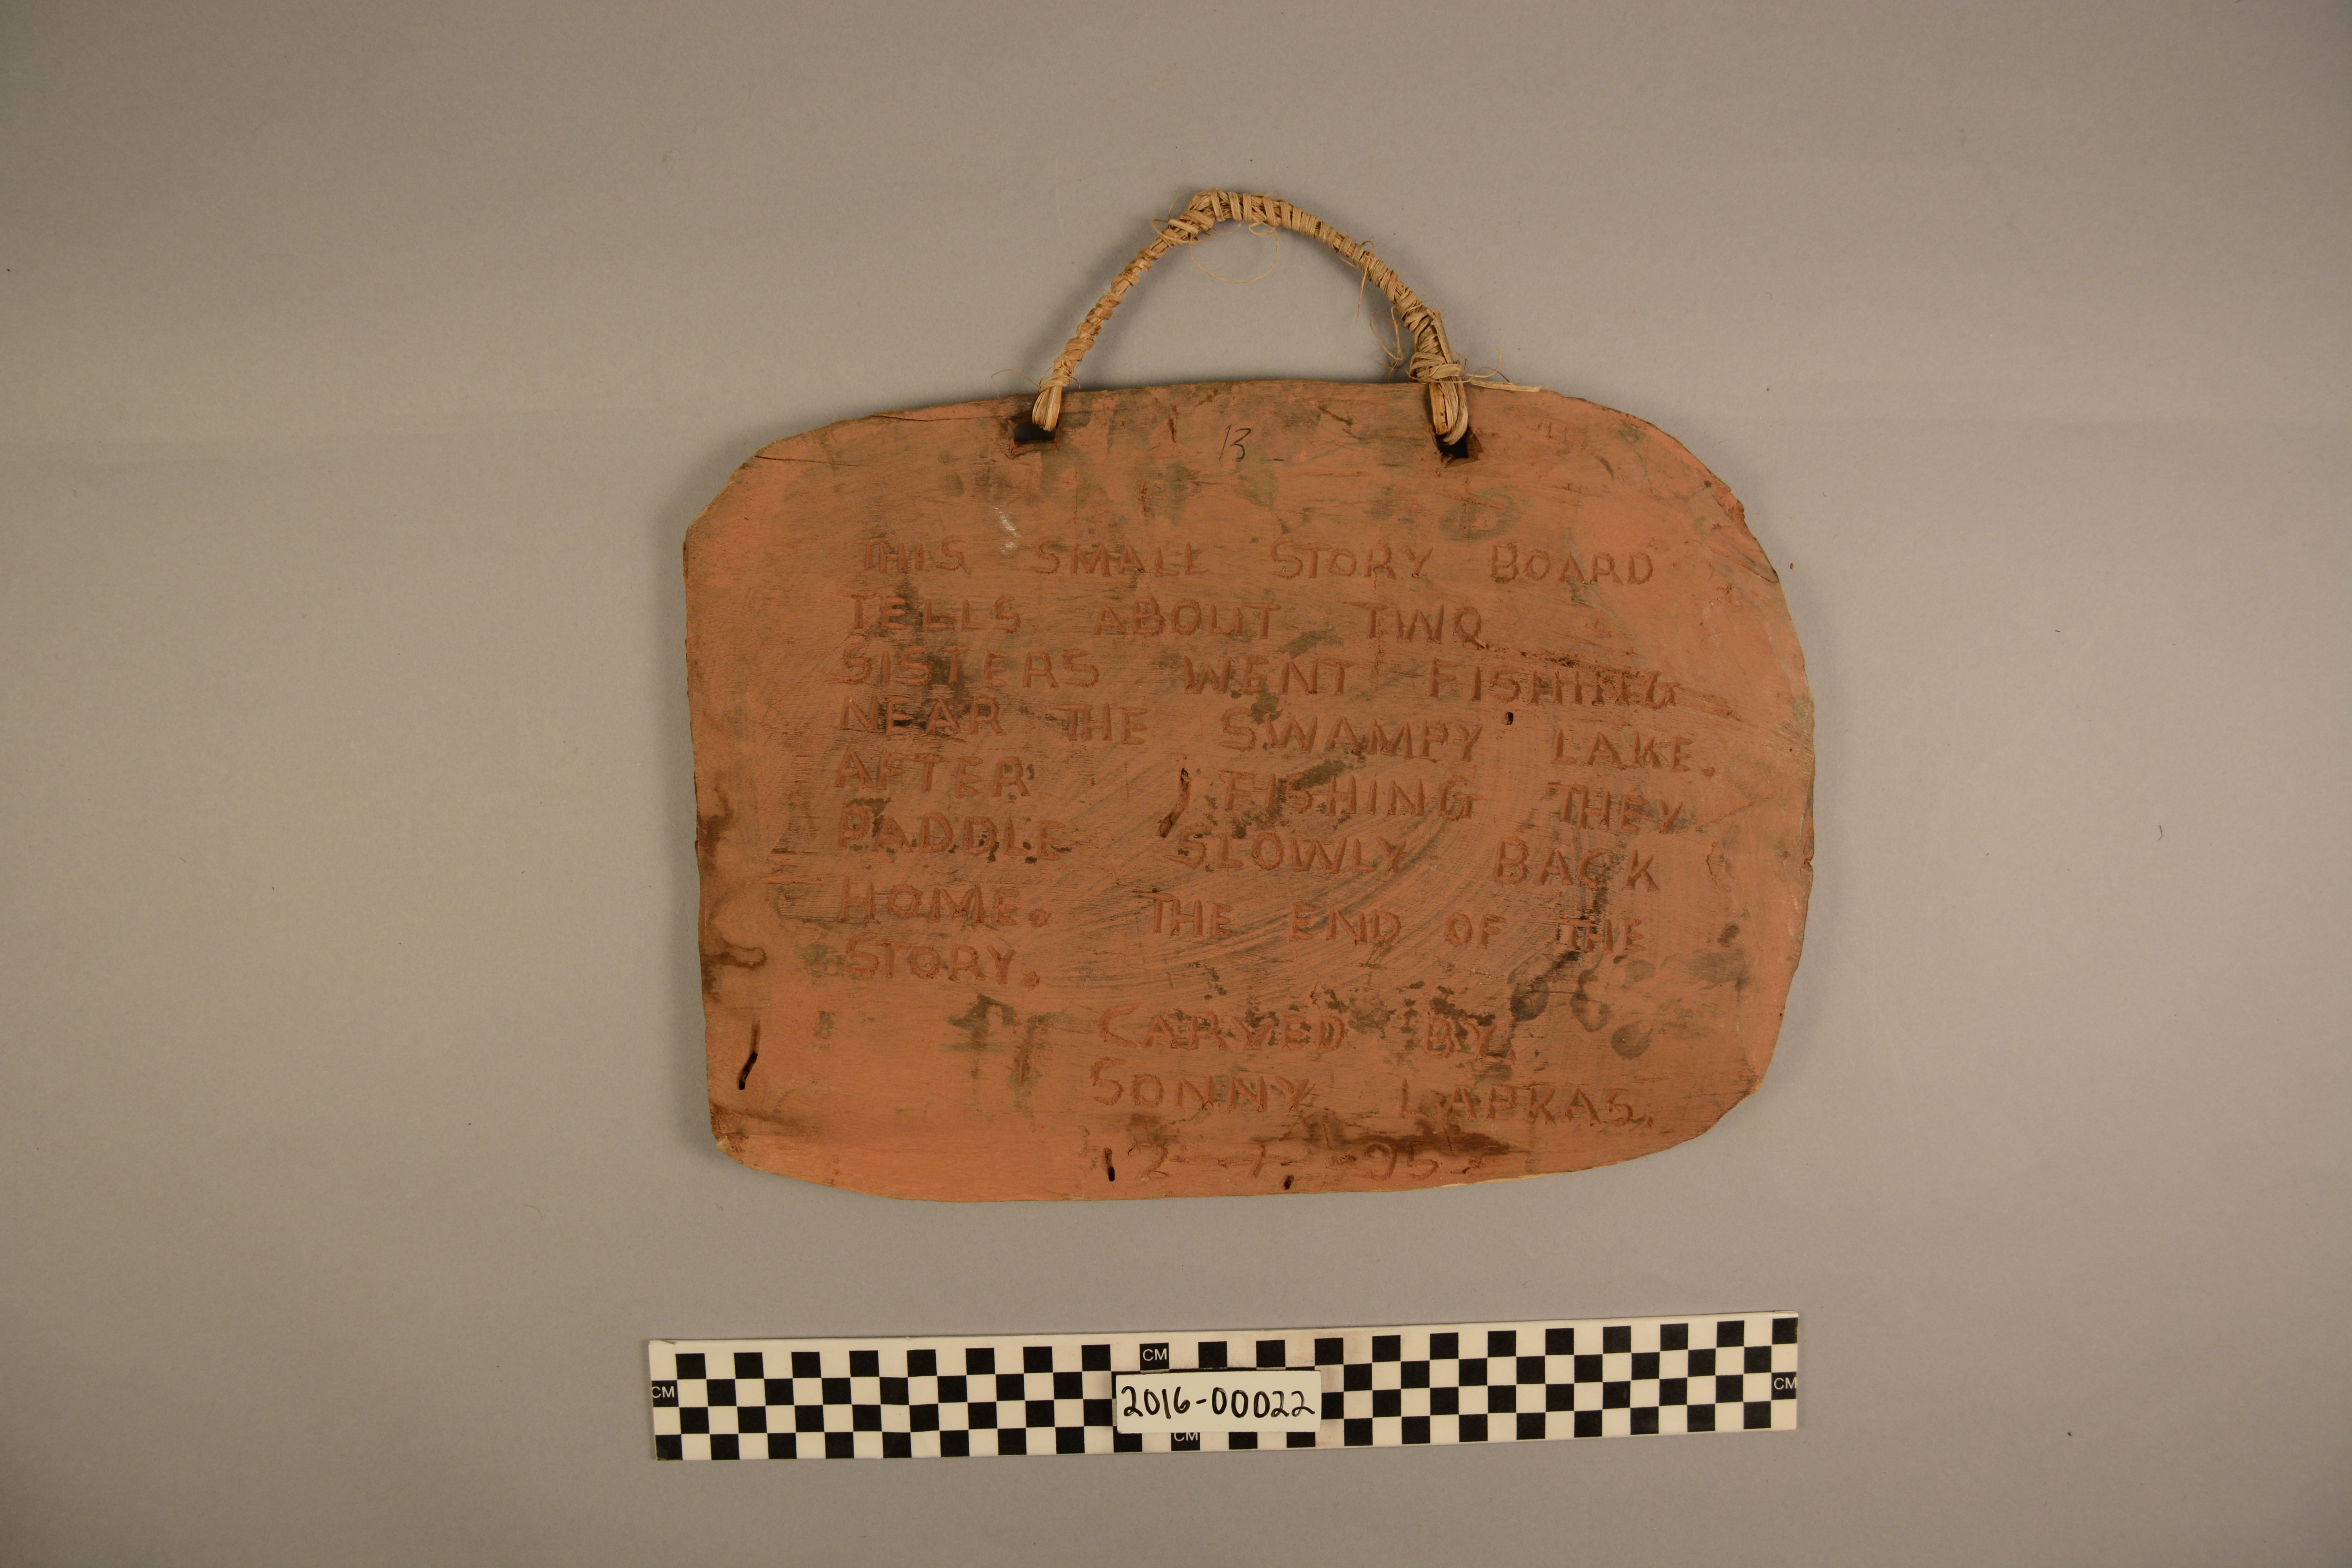 13
THIS SMALL STORY BOARD
TELLS ABOUT TWO
SISTERS WENT FISHING
NEAR THE SWAMPY LAKE.
AFTER FISHING THEY
PADDLE SLOWLY BACK
HOME. THE END OF THE
STORY.
CARVED BY.
SONNY LAPKAS.
12-7-95
CM
CM
CM
2016-00022
CM